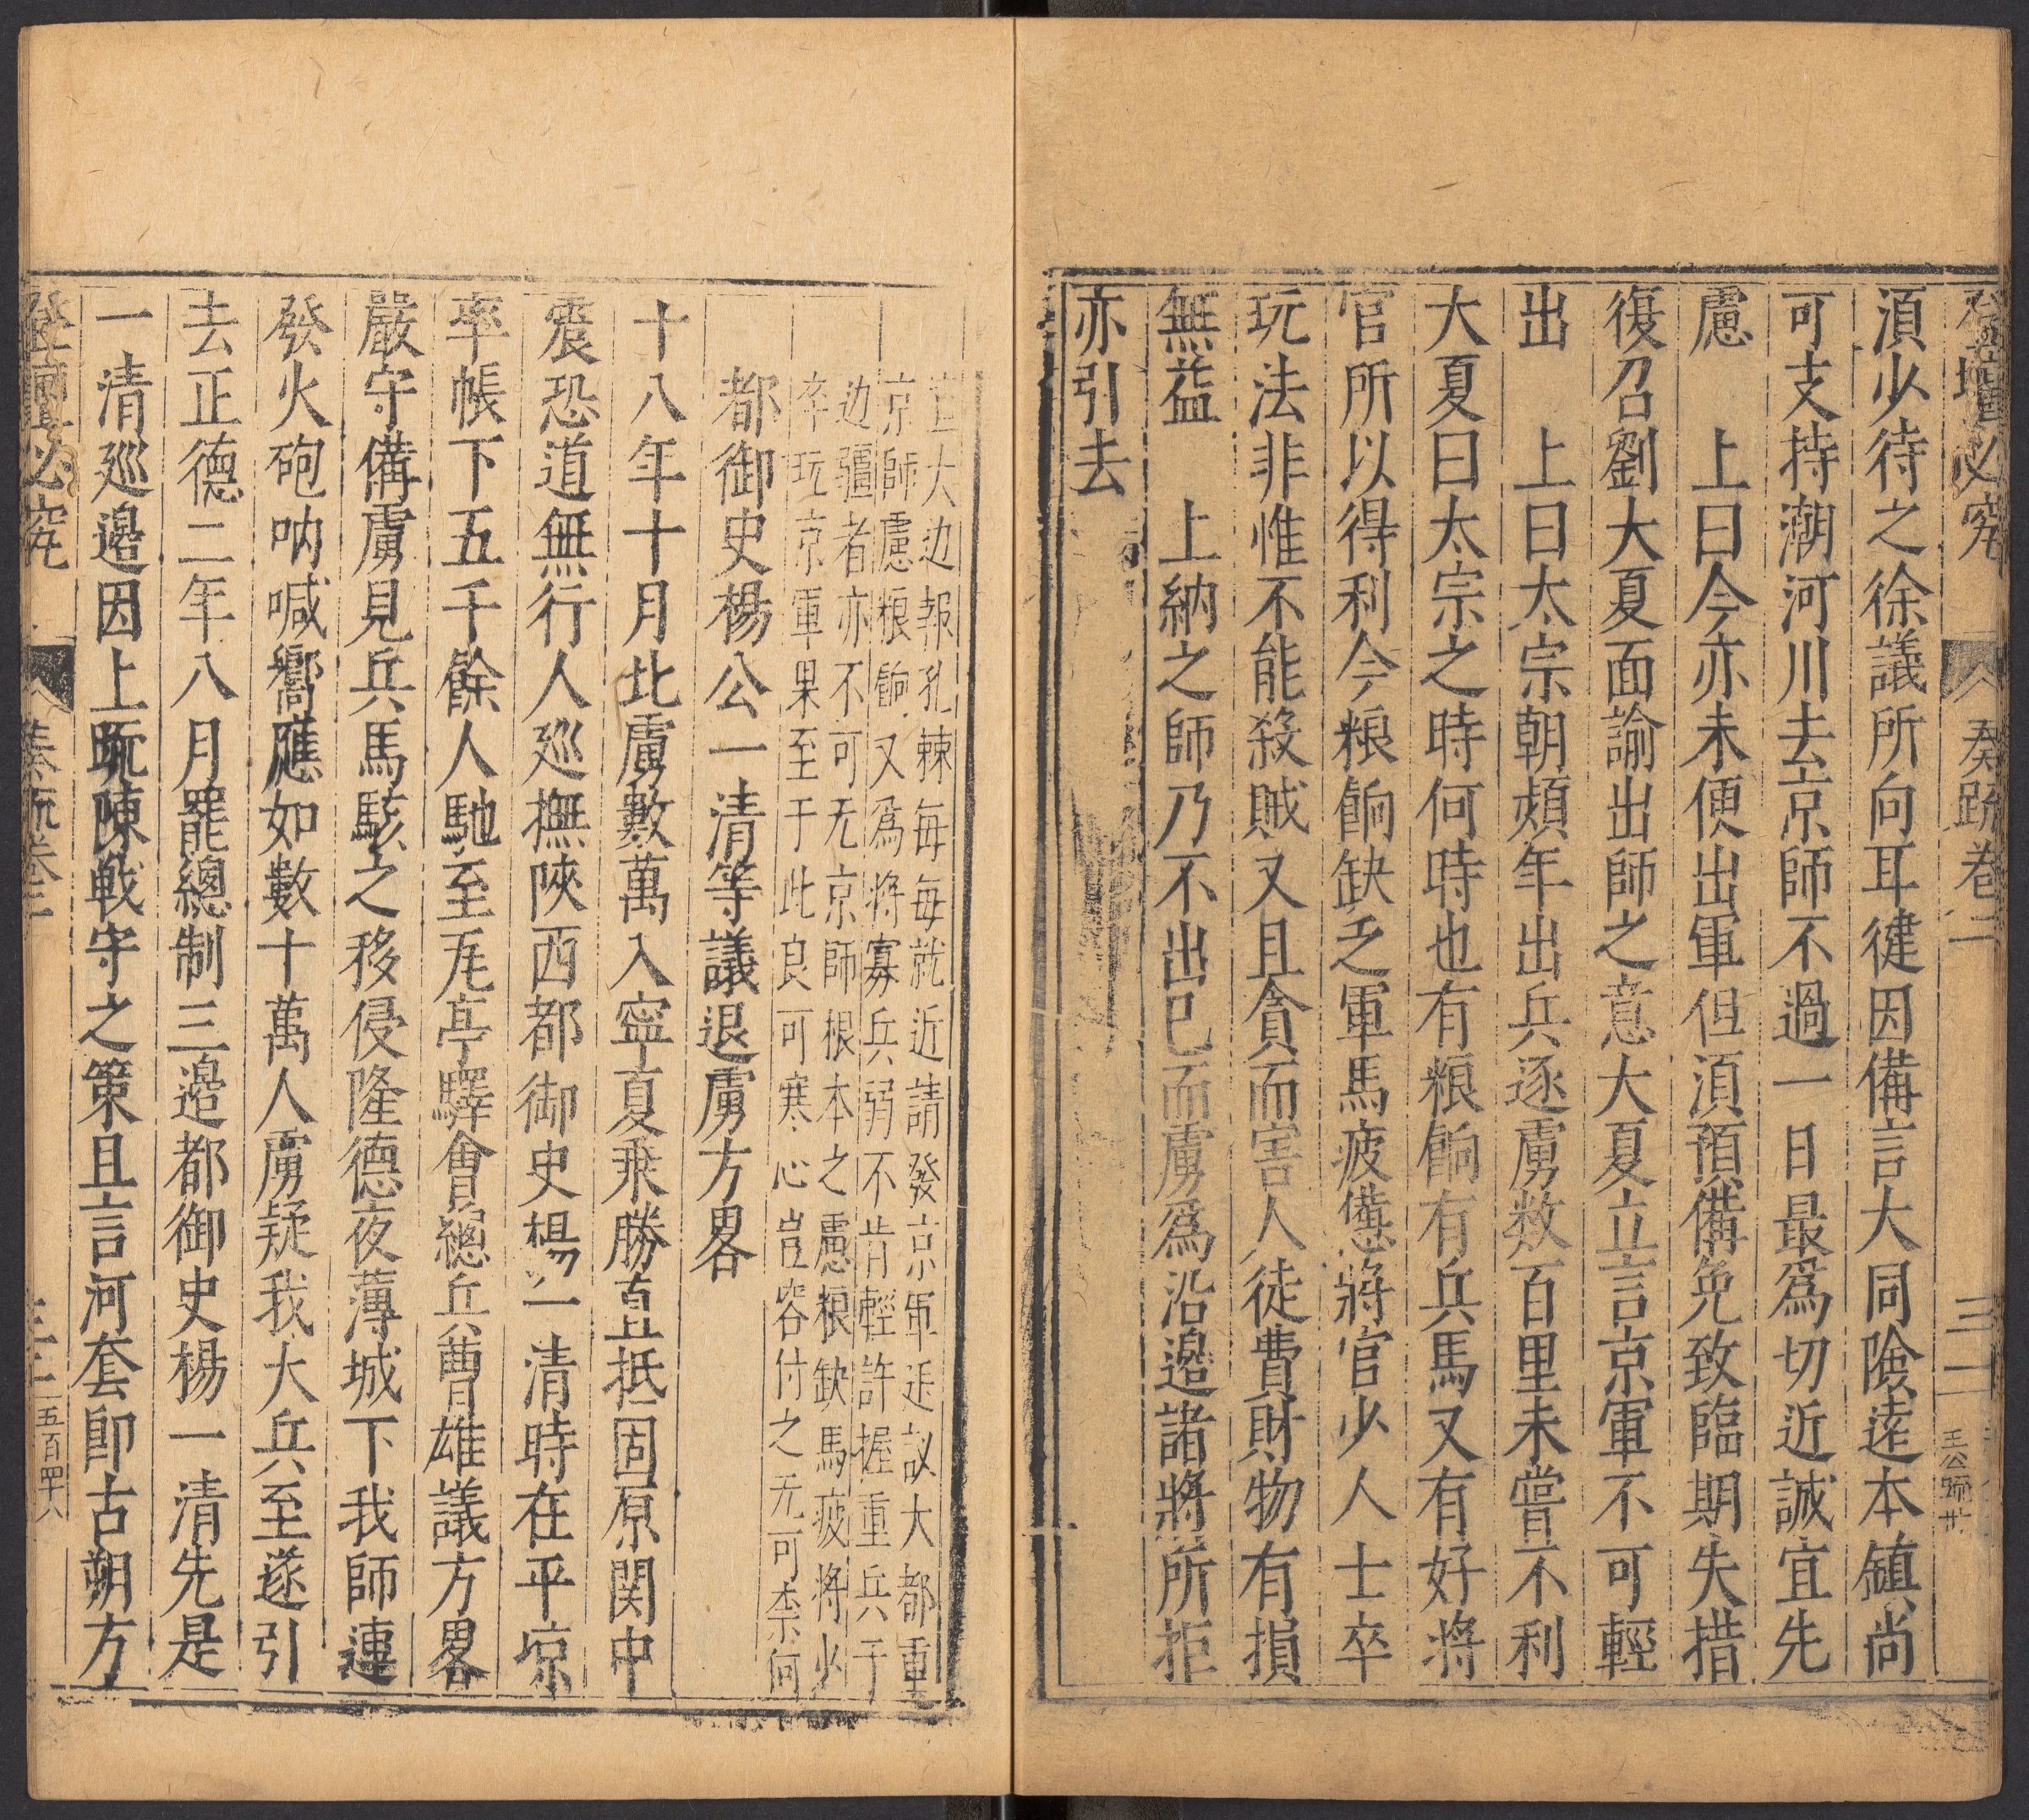 登壇必究
奏疏卷二
三二
須少待之徐議所向耳徤因備言大同險遠本鎮尚
可支持潮河川去京師不過一日最爲切近誠宜先
慮　上曰今亦未便出軍但須預備免致臨期失措
復召劉大夏面諭出師之意大夏立言京軍不可輕
出　上曰太宗朝頻年出兵逐虜数百里未嘗不利
大夏曰太宗之時何時也有粮餉有兵馬又有好將
官所以得利今粮餉缺乏軍馬疲憊將官少人士卒
玩法非惟不能殺賊又且貪而害人徒費財物有損
無益　上納之師乃不出已而虜爲沿邊諸將所拒
亦引去
大边報孔棘每每就近請發京軍廷議大都重
京師慮粮餉又爲將寡兵弱不肯輕許握重兵于
边疆者亦不可无京師根本之慮粮缺馬疲將少
卒玩京軍果至于此良可寒心豈容付之无可柰何
都御史楊公一清等議退虜方畧
十八年十月北虜數萬入寧夏乘勝直抵固原関中
震恐道無行人廵撫陝西都御史楊一清時在平凉
率帳下五千餘人馳至瓦亭驛會總兵曹雄議方畧
嚴守備虜見兵馬駭之移侵隆德夜薄城下我師連
發火砲吶喊嚮應如數十萬人虜疑我大兵至遂引
去正德二年八月罷總制三邉都御史楊一清先是
一清廵邉因上疏陳戰守之策且言河套即古朔方
登壇必究
奏疏卷二
三二
五百四十八